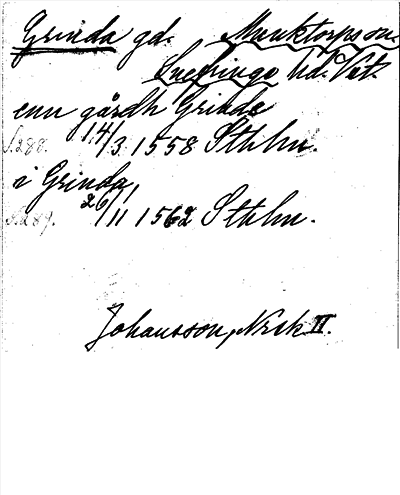 Grinda gd. Munktorps sn.
Snefringe hd. Vstl.
enn gårdh Grinde
S. 288. 14/3 1558 Sthlm.
i Grinda,
S. 289. 26/11 1562 Sthlm.
Johansson, Nrsk II.